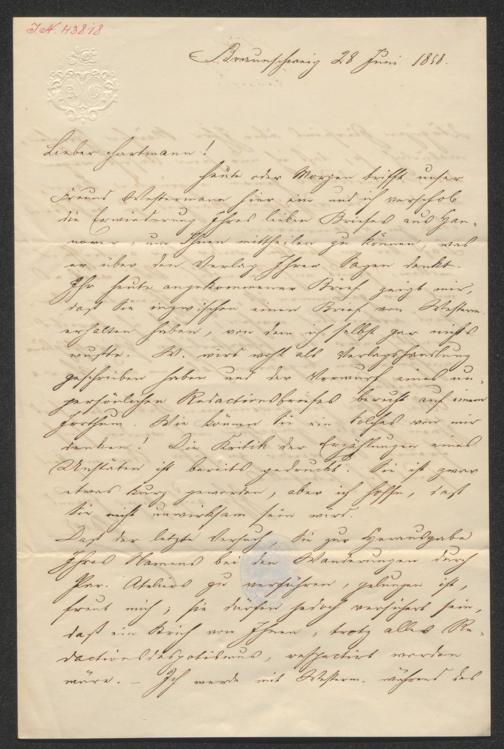 I.N. 43818
Braunschweig 28 Juni 1858.
Lieber Hartmann!
Heute oder Morgen trifft unser
Freund Westermann hier ein und ich verschob
die Erwiederung Ihres lieben Briefes aus Han-
nover, um Ihnen mittheilen zu können, was
er über den Verlag Ihrer Sagen denkt.
Ihr heute angekommener Brief zeigt mir,
daß Sie inzwischen einen Brief von Westerm.
erhalten haben, von dem ich selbst gar nichts
wußte. W. wird wohl als Verlagshandlung
geschrieben haben und der Vorwurf eines un-
persönlichen Redactionsbriefes beruht auf einem
Irrthum. Wie können Sie ein Solches von mir
denken! Die Kritik der Erzählungen eines
Unstäten ist bereits gedruckt. Sie ist zwar
etwas kurz geworden, aber ich hoffe, daß
Sie nicht unwirksam sein wird.
Daß der letzte Versuch, Sie zur Herausgabe
Ihres Namens bei den Wanderungen durch
Par. Ateliers zu verführen, gelungen ist,
freut mich; Sie dürfen jedoch versichert sein,
daß ein Brief von Ihnen, trotz alles Re-
dactionsdespotismus, respectirt worden
wäre. – Ich werde mit Westerm. während des